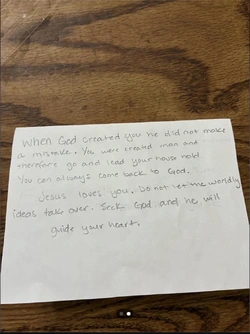 When God created you he did not make
a mistake. You were created man and
therefore go and lead your house hold
You can always come back to God.
Jesus loves you. Do not let the worldly
ideas take over. Seek God and he will
guide your heart.